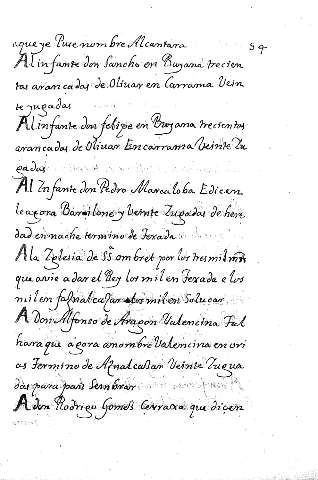 aqueye Puse nombre Alcantara 59
Al infante don Sancho en Buyana trecien
tas arancadas de Oliuar en Carrama Vein
te jugadas
Al infante don felipe en Buyana trecientas
arancadas de Oliuar En carrama Veinte Zu
gadas
Al Infante don Pedro Marcaloba E dicen
le agora Barcilone y Veinte Zugadas de her
dad en nache termino de Ferada
A la Yglesia de SS por los tres mil
que avie a dar el Rey los mil en Ferada e los
mil en Solucar
A Don Alfonso de Aragon Valencina Tal
hara que agora a nombre Valencina en ori
as Termino de Aznalcaßar Veinte Zugua
das para pan Sembrar
A don Rodrigo Gomes Corraxa que diçen